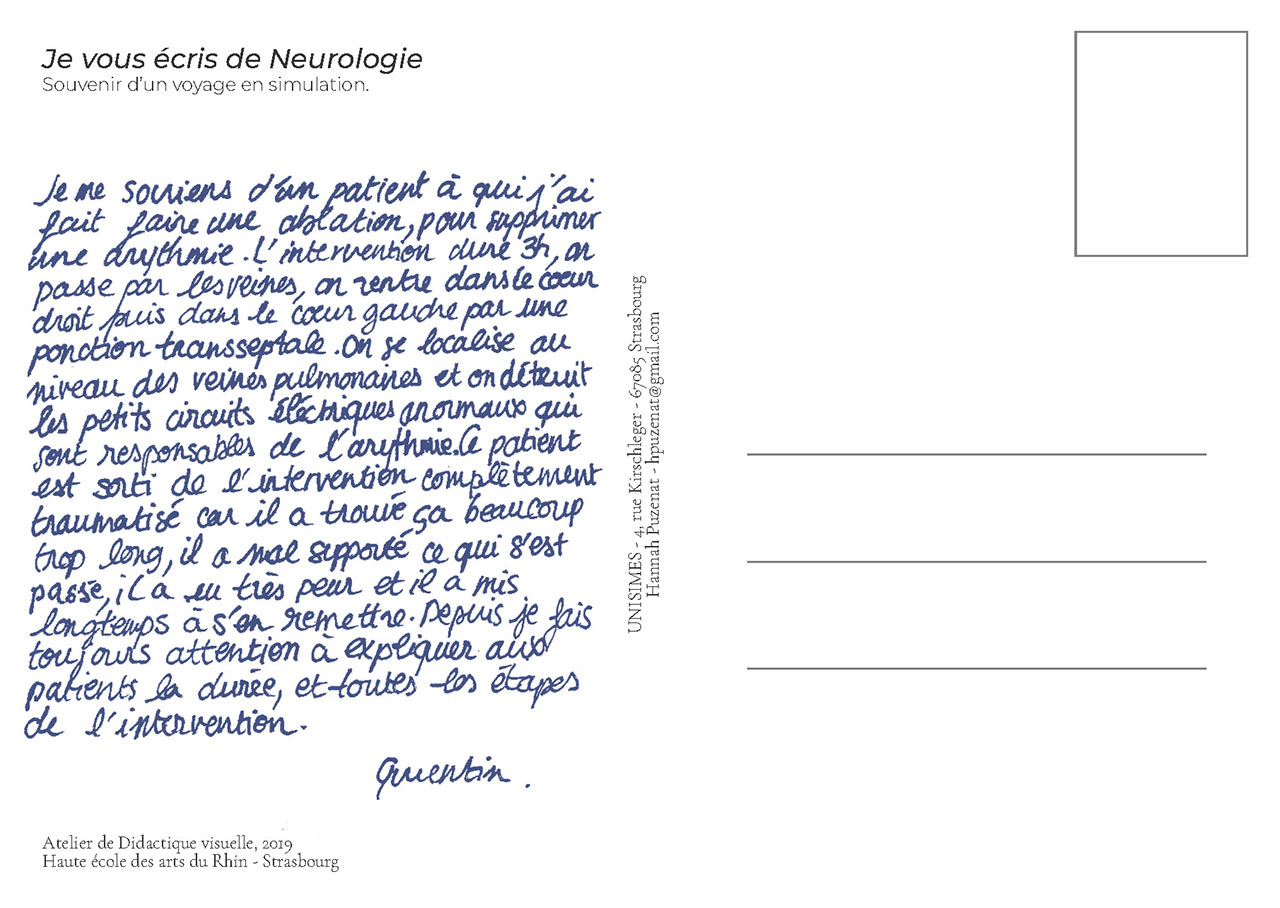 Je vous écris de Neurologie
Souvenir d'un voyage en simulation.
Je me souviens d'un patient à qui j'ai
fait faire une ablation, pour supprimer
une arythmie. L'intervention dure 3h, on
passe par les veines, on rentre dans le cœur
droit puis dans le cœur gauche par une
ponction transseptale. On se localise au
niveau des veines pulmonaires et on détruit
les petits circuits éléctriques anormaux qui
sont responsables de l'arythmie. Ce patient
est sorti de l'intervention complètement
traumatisé car il a trouvé ça beaucoup
trop long, il a mal supporté ce qui s'est
passé, il a eu très peur et il a mis
longtemps à s'en remettre. Depuis je fais
toujours attention à expliquer aux
patients la durée, et toutes les étapes
de l'intervention.
Quentin.
Atelier de Didactique visuelle, 2019
Haute école des arts du Rhin - Strasbourg
UNISIMES - 4, rue Kirschleger - 67085 Strasbourg
Hannah Puzenat - hpuzenat@gmail.com